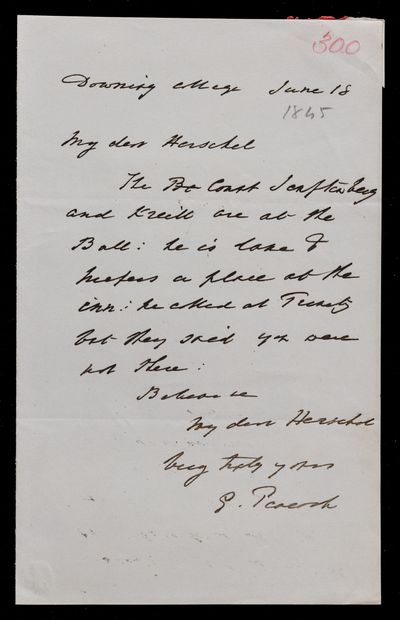 300
Downing College June 18
1845
My dear Herschel
The Count Senftenberg
and Kreill are at the
Bull: he is lame &
prefers a place at the
inn: he called at Trinity
but they said you were
not there:
Believe me
My dear Herschel
very truly yours
G. Peacock